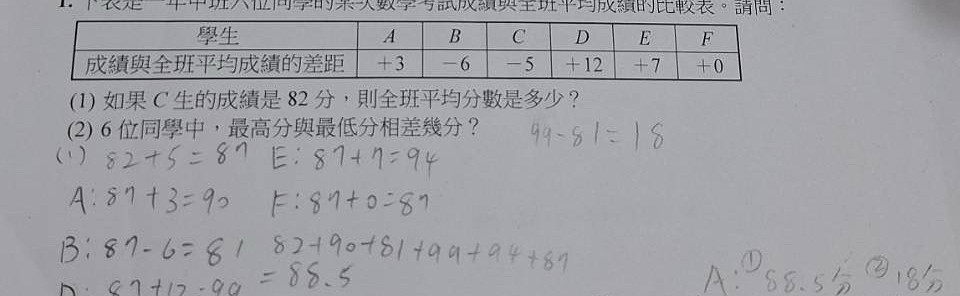 1. 下表是一年甲班六位同學的某次數學考試成績與全班平均成績的比較表。請問：
學生 A B C D E F
成績與全班平均成績的差距 +3 -6 -5 +12 +7 +0
(1) 如果 C 生的成績是 82 分，則全班平均分數是多少？
(2) 6 位同學中，最高分與最低分相差幾分？ 99-81=18
(1) 82+5=87 E: 87+7=94
A: 87+3=90 F: 87+0=87
B: 87-6=81 82+90+81+99+94+87
D: 87+12=99 =88.5 A: ① 88.5分 ② 18分